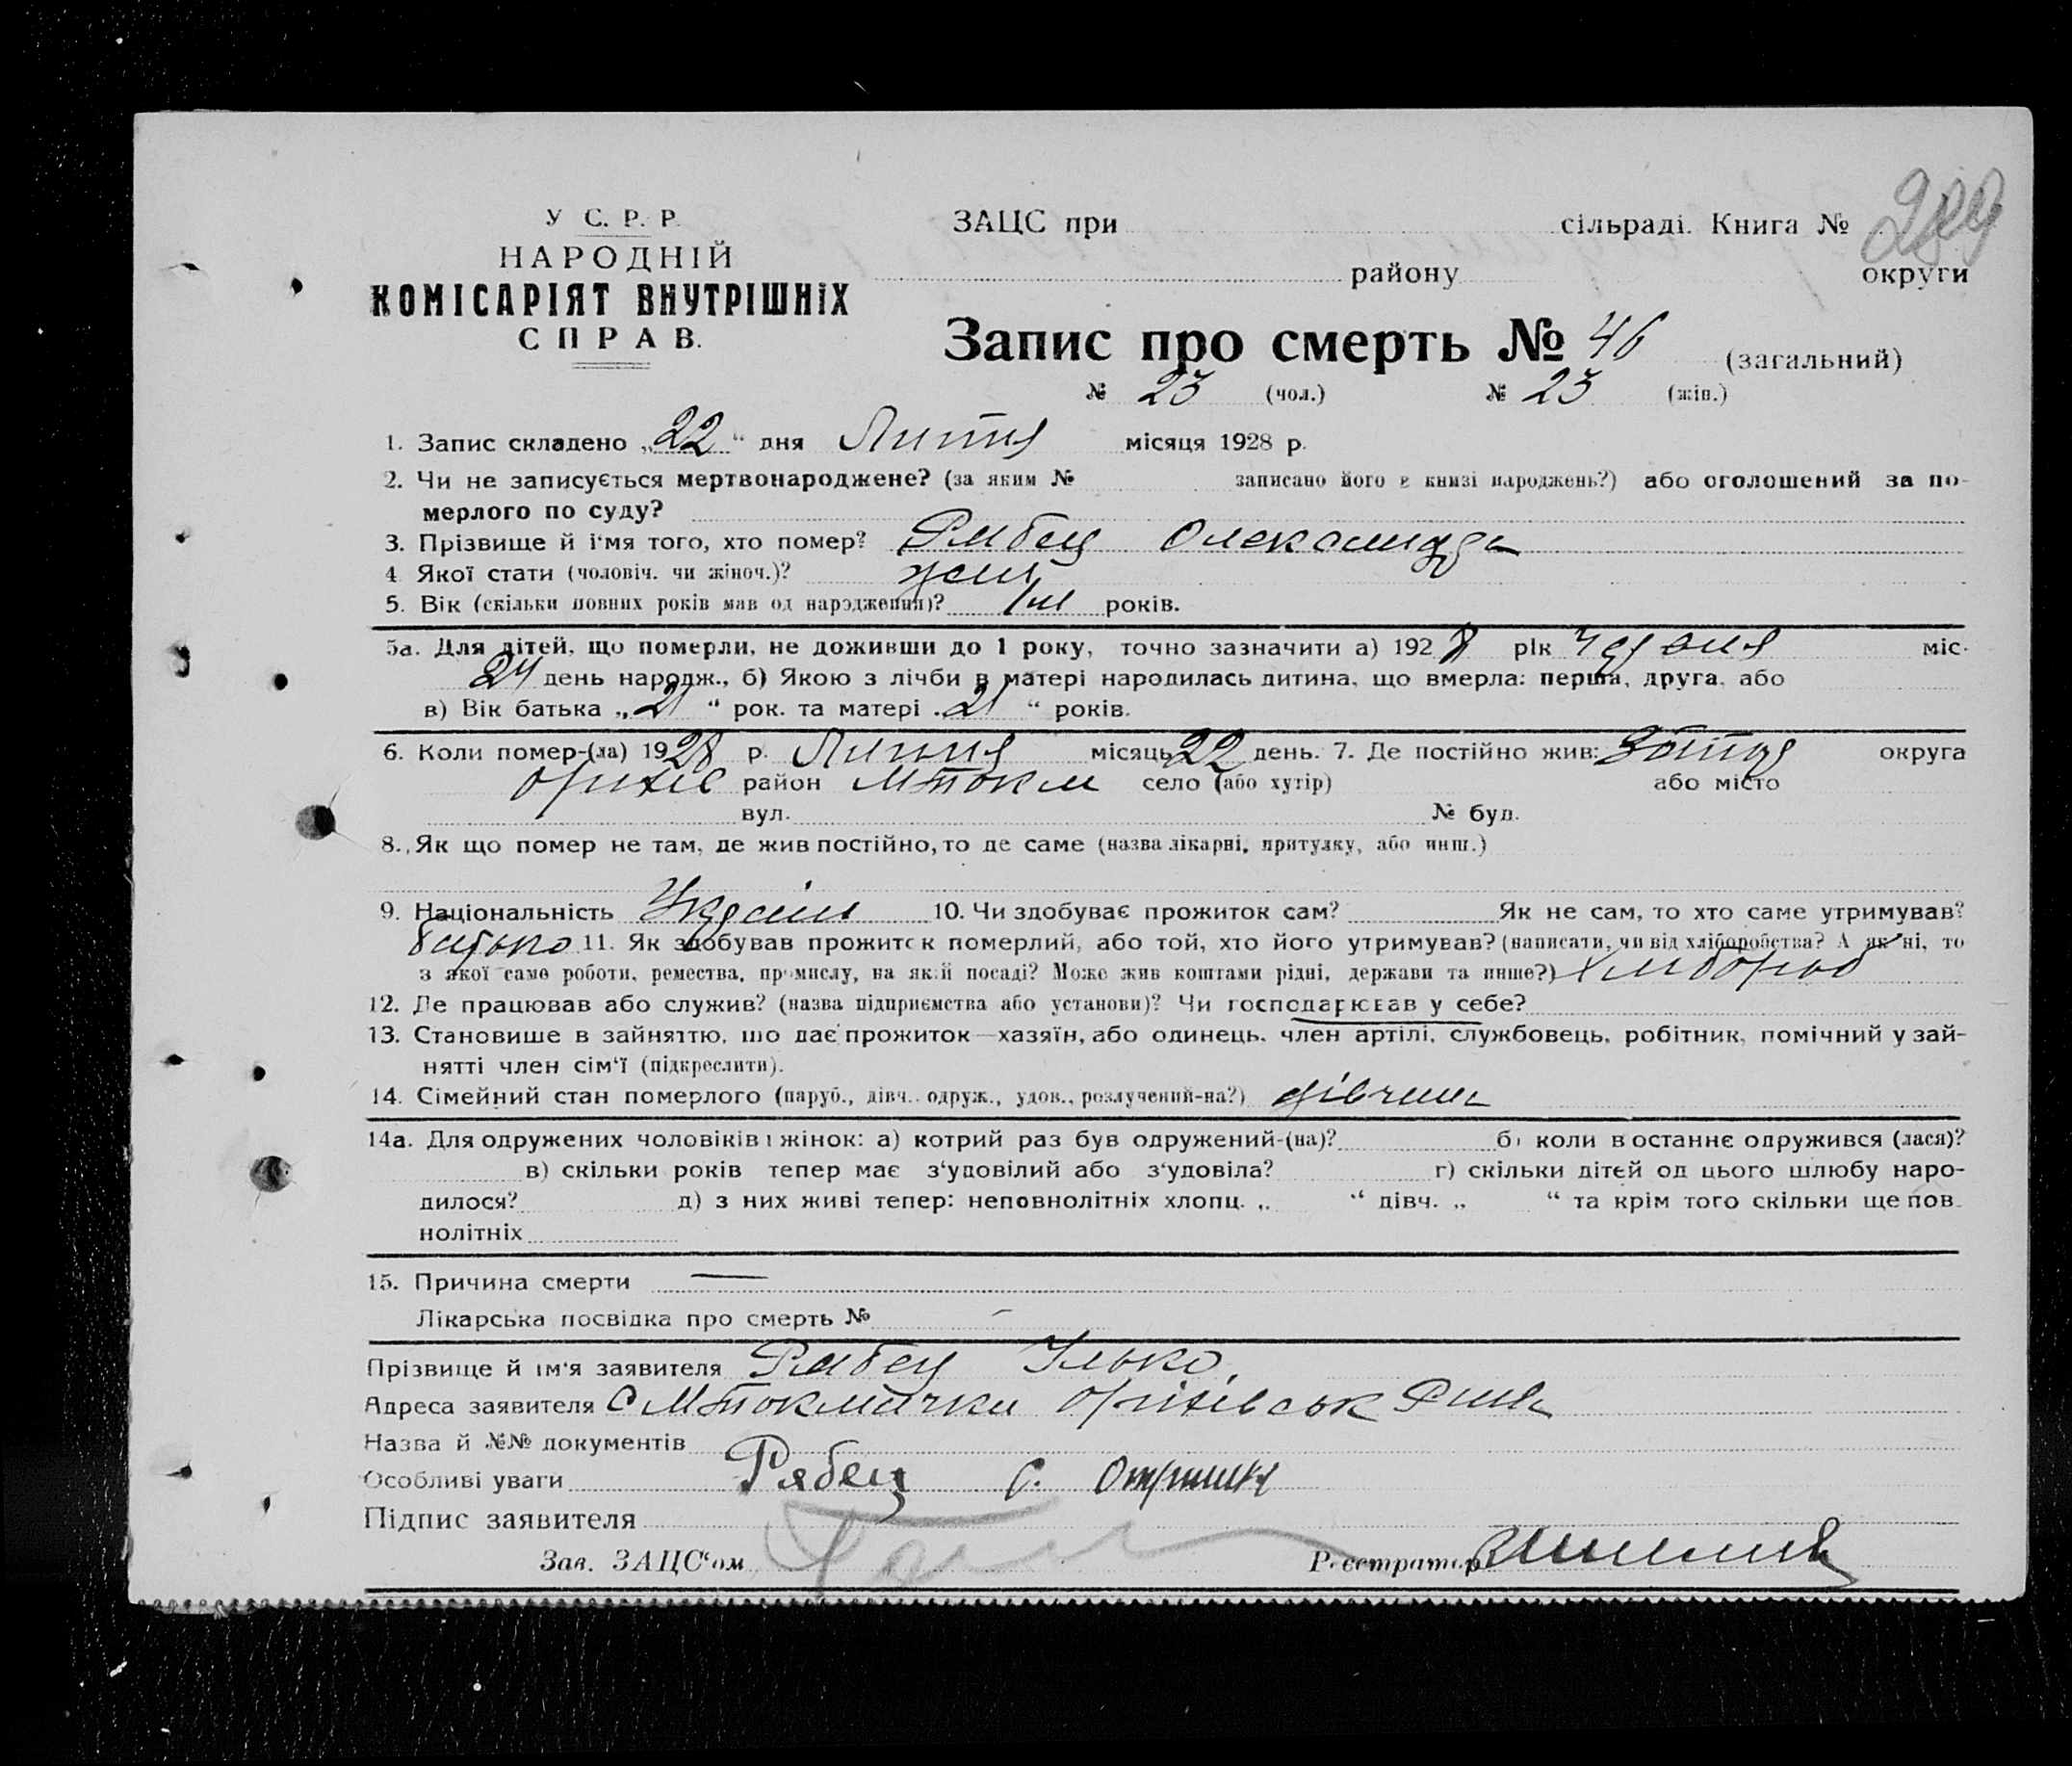 У С. Р. Р.
НАРОДНІЙ
КОМІСАРІЯТ ВНУТРІШНІХ
СПРАВ.
ЗАЦС при сільраді. Книга №
району округи
Запис про смерть № 46 (загальний)
№ 23 (чол.) № 23 (жін.)
1. Запис складено „22“ дня Липня місяця 1928 р.
2. Чи не записується мертвонароджене? (за яким № записано його в книзі народжень?) або оголошений за по-
мерлого по суду?
3. Прізвище й і'мя того, хто помер? Рябец Олександра
4 Якої стати (чоловіч. чи жіноч.)? жін
5. Вік (скільки повних років мав од народження)? 1 м років.
5а. Для дітей, що померли, не доживши до 1 року, точно зазначити а) 1928 рік Червня міс.
24 день народж., б) Якою з лічби в матері народилась дитина, що вмерла: перша, друга, або
в) Вік батька „21“ рок. та матері „21“ років.
6. Коли помер-(ла) 1928 р. Липня місяць 22 день. 7. Де постійно жив: округа
Оріхів район МТокм село (або хутір) або місто
вул. № буд.
8. Як що помер не там, де жив постійно, то де саме (назва лікарні, притулку, або инш.)
9. Національність Україн 10. Чи здобуває прожиток сам? Як не сам, то хто саме утримував?
батько 11. Як здобував прожиток померлий, або той, хто його утримував? (написати, чи від хліборобства? А як ні, то
з якої саме роботи, ремества, промислу, на якій посаді? Може жив коштами рідні, держави та инше?) хлібороб
12. Де працював або служив? (назва підприємства або установи)? Чи господарював у себе?
13. Становище в зайняттю, що дає прожиток—хазяїн, або одинець, член артілі, службовець, робітник, помічний у зай-
нятті член сім'ї (підкреслити).
14. Сімейний стан померлого (паруб., дівч., одруж., удов., розлучений-на?) дівчина
14а. Для одружених чоловіків і жінок: а) котрий раз був одружений-(на)? б) коли в останнє одружився (лася)?
в) скільки років тепер має з'удовілий або з'удовіла? г) скільки дітей од цього шлюбу наро-
дилося? д) з них живі тепер: неповнолітніх хлопц. „ “ дівч. „ “ та крім того скільки ще пов-
нолітніх
15. Причина смерти —
Лікарська посвідка про смерть № –
Прізвище й ім'я заявителя Рябец Ілько
Адреса заявителя С МТокмачки Оріхівськ
Назва й №№ документів
Особливі уваги Рябец С.
Підпис заявителя
Зав. ЗАЦС'ом Реєстратор